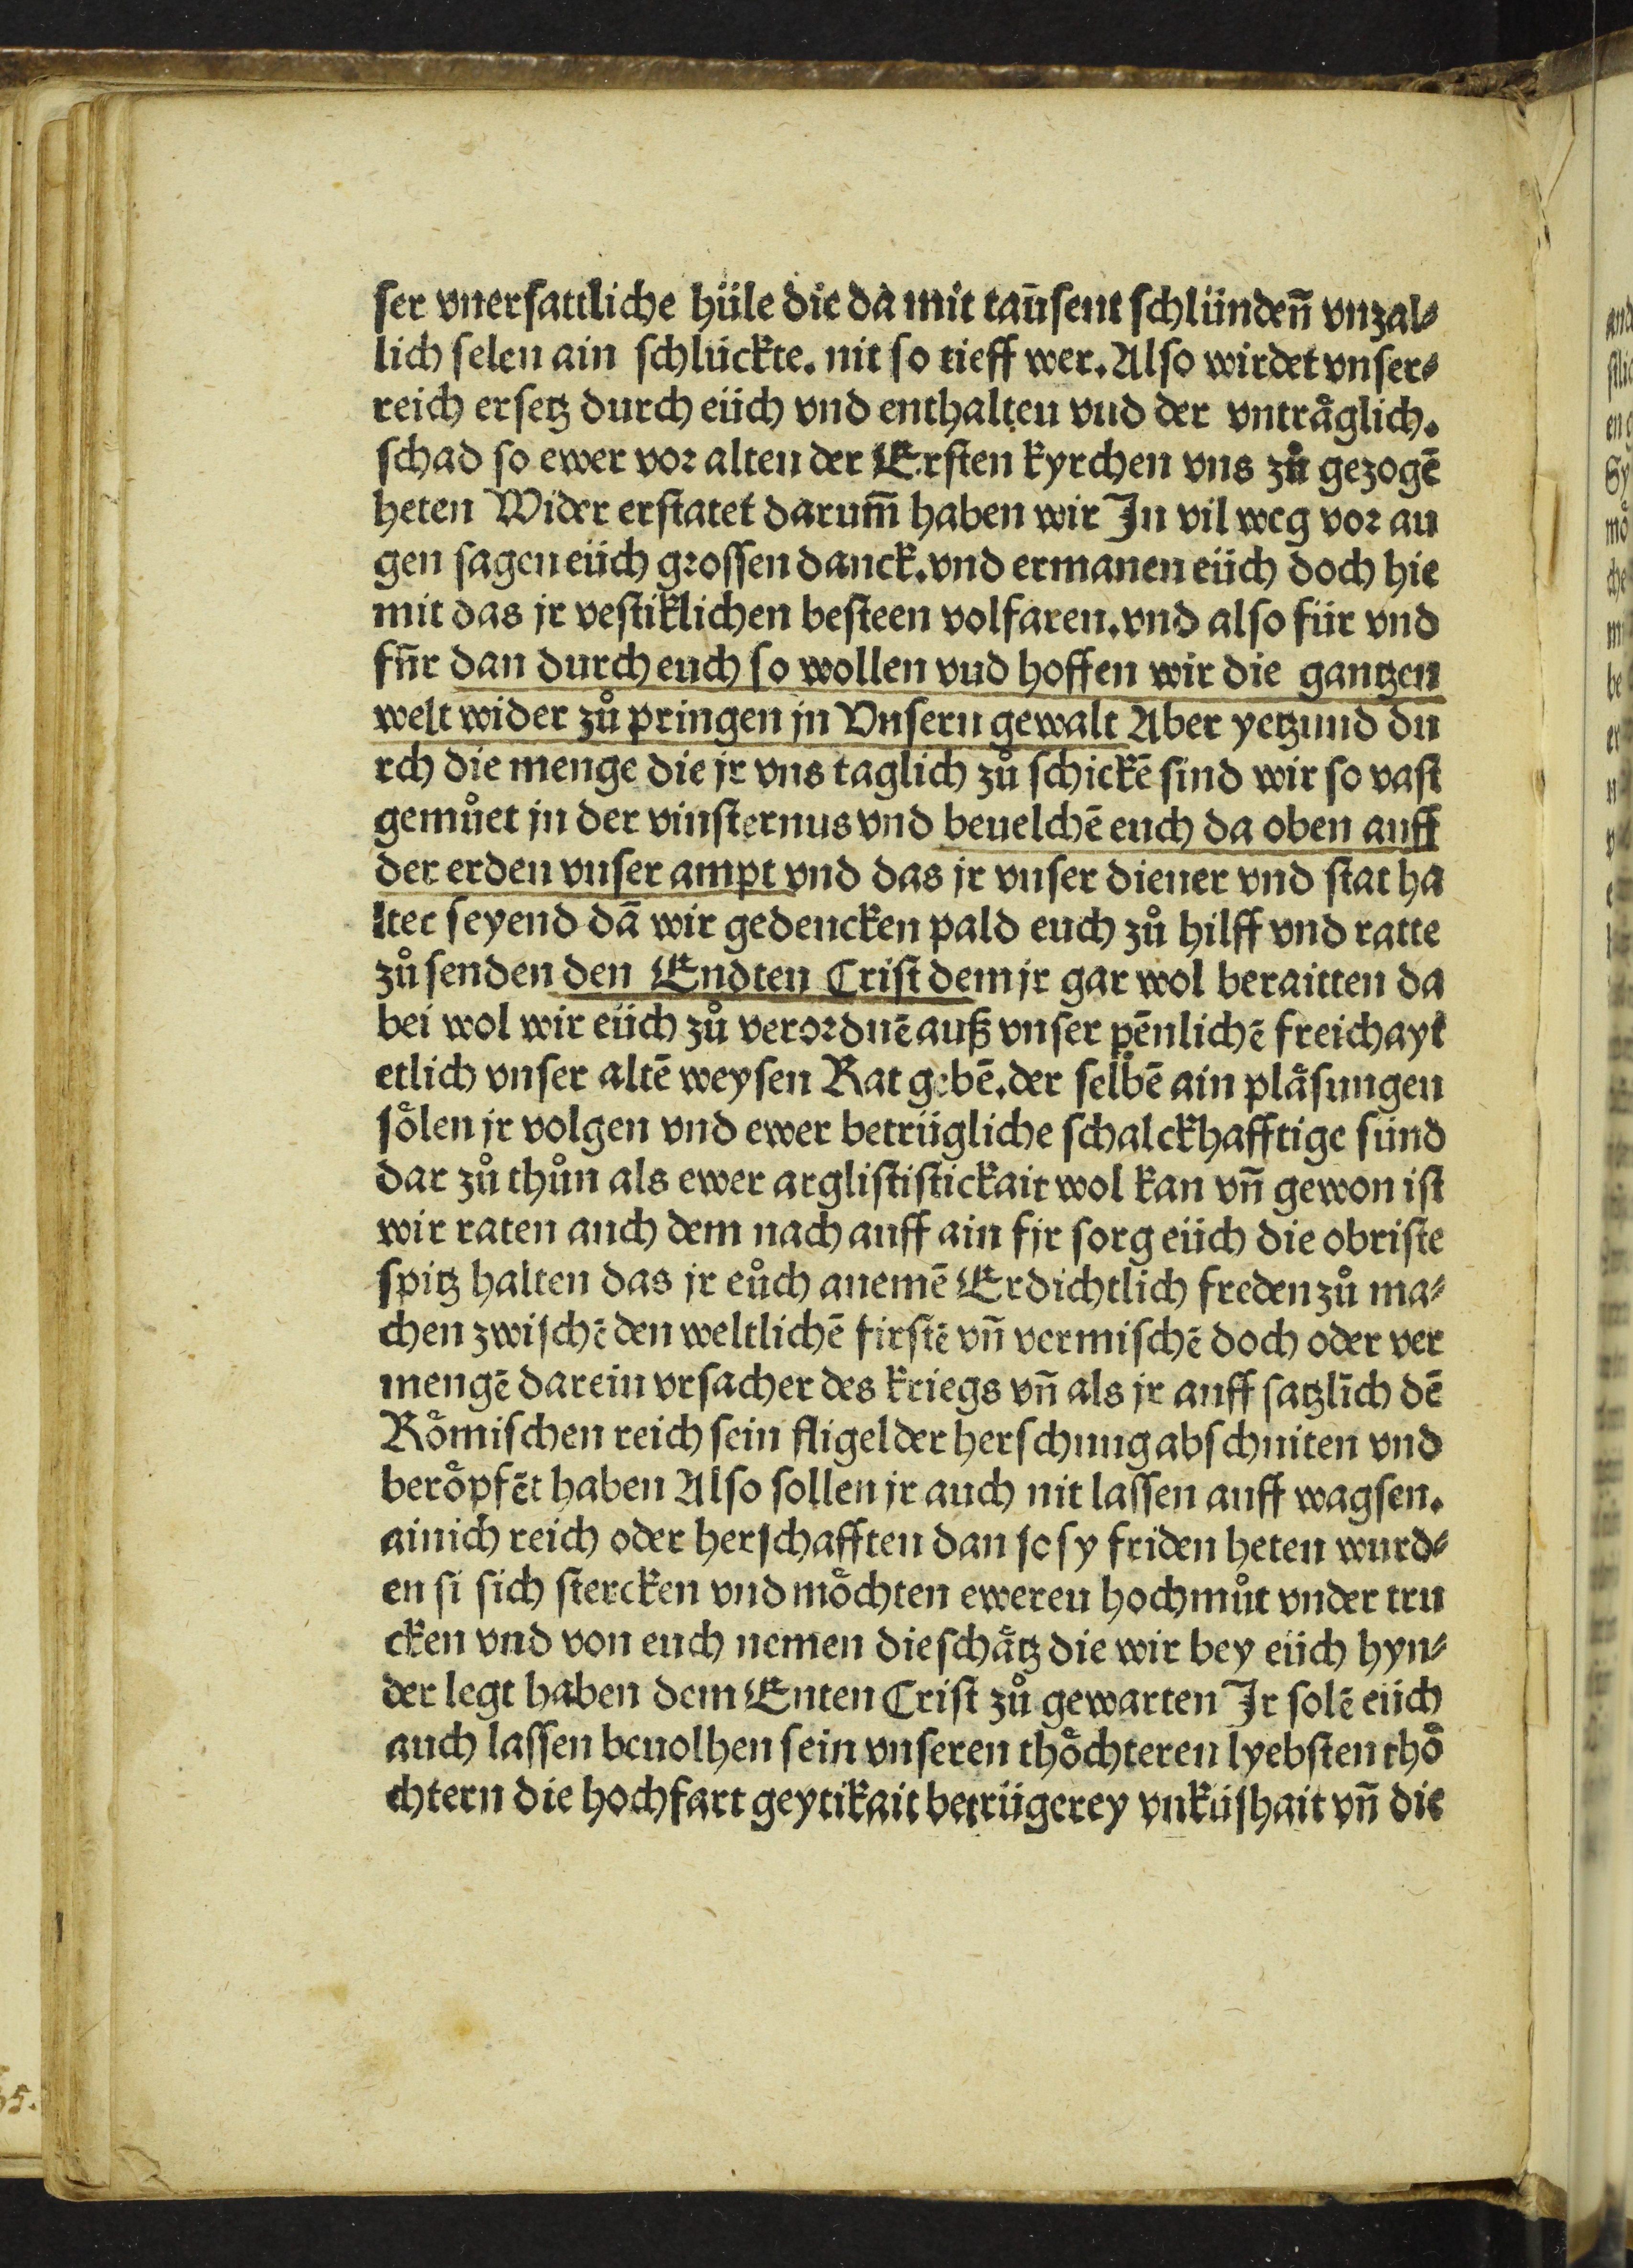 ser vnersattliche hüle die da mit taūsent schlündenn̄ vnzal⸗
lich selen ain schluckte. nit so tieff wer. Also wirdet vnser⸗
reich ersetz durch eüch vnd enthalten vud der vntråglich.
schad so ewer vor alten der Ersten kyrchen vns zů gezogē
heten Wider erstatet darum̄ haben wir In vil weg vor au
gen sagen eüch grossen danck. vnd ermanen eüch doch hie
mit das jr vestiklichen besteen volfaren. vnd also für vnd
fūr dan durch euch so wollen vud hoffen wir die gantzen
welt wider zů pringen jn Vnsern gewalt Aber yetzund du
rch die menge die jr vns taglich zů schickē sind wir so vast
gemůet jn der vinsternus vnd beuelchē euch da oben auff
der erden vnser ampt vnd das jr vnser diener vnd stat ha
lter seyend dā wir gedencken pald euch zů hilff vnd ratte
zů senden den Endten Crist dem jr gar wol beraitten da
bei wol wir eüch zů verordnē auß vnser pēnlichē freichayt
etlich vnser altē weysen Rat gebē. der selbē ain plåsungen
sőlen jr volgen vnd ewer betrügliche schalckhafftige sünd
dar zů thůn als ewer arglististickait wol kan vn̄ gewon ist
wir raten auch dem nach auff ain fir sorg eüch die obriste
spitz halten das jr eůch anemē Erdichtlich freden zů ma⸗
chen zwischē den weltlichē firstē vn̄ vermischē doch oder ver
mengē darein vrsacher des kriegs vn̄ als jr auff satzlich dē
Rőmischen reich sein fligel der herschung abschniten vnd
berőpfēt haben Also sollen jr auch nit lassen auff wagsen.
ainich reich oder herschafften dan so sy friden heten wurd⸗
en si sich stercken vnd mőchten eweren hochmůt vnder tru
cken vnd von euch nemen die schåtz die wir bey eüch hyn⸗
der legt haben dem Enten Crist zů gewarten Ir solē eüch
auch lassen beuolhen sein vnseren thőchteren lyebsten thő
chtern die hochfart geytikait betrügerey vnküshait vn̄ die